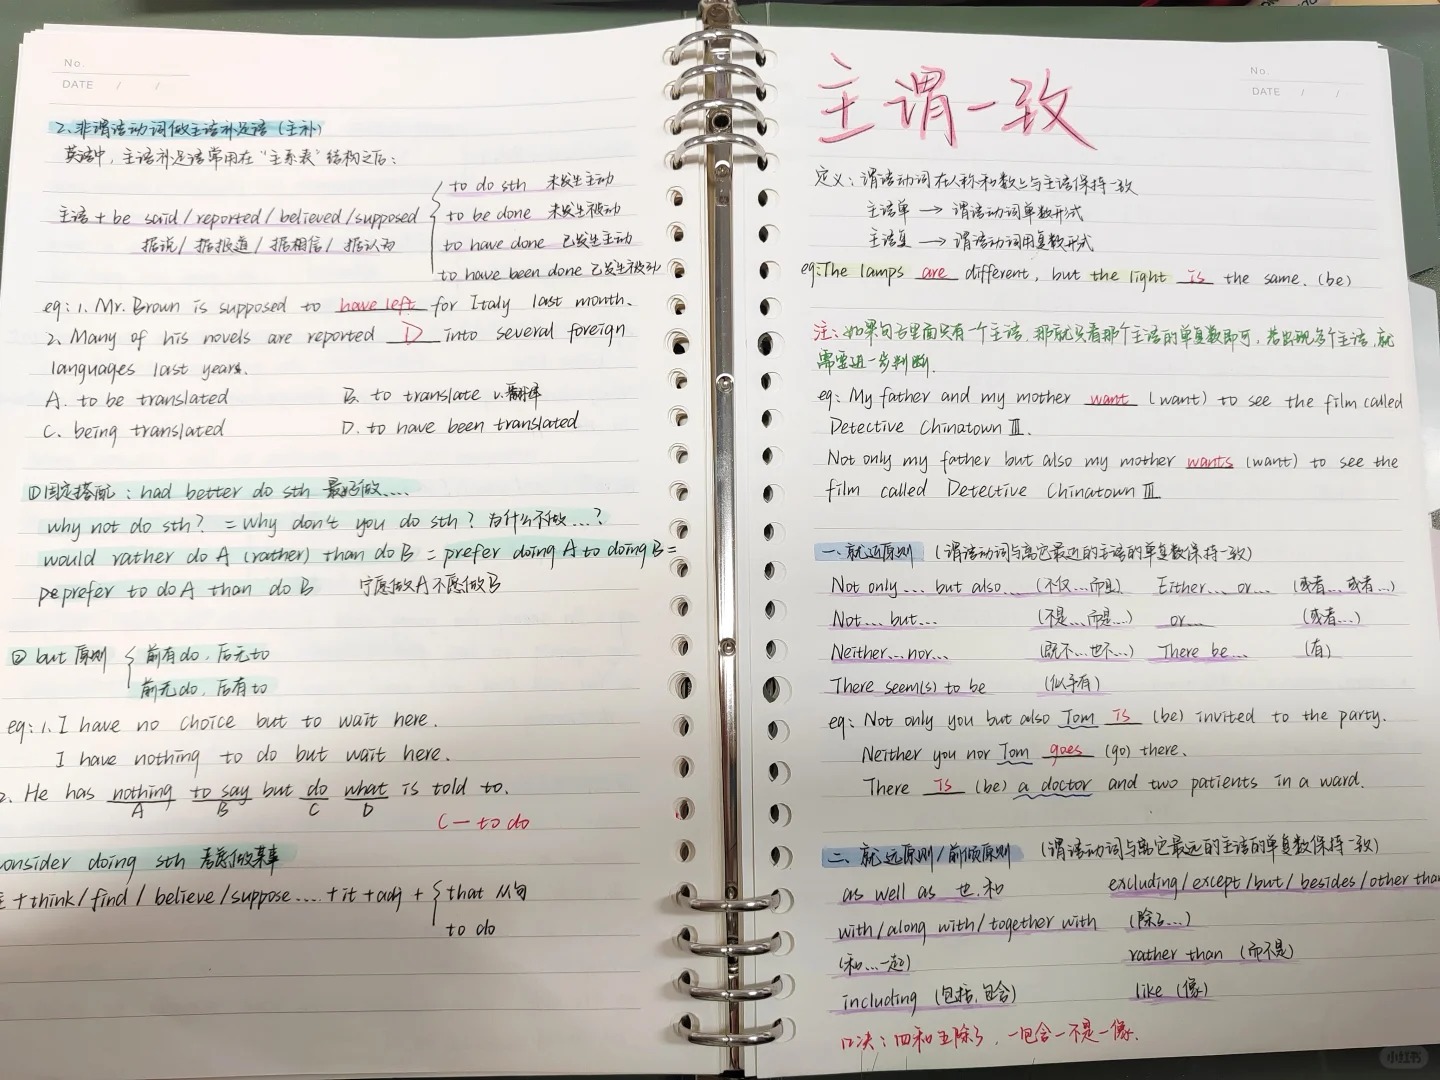 No.
DATE / /
2、非谓语动词做主语补足语（主补）
英语中，主语补足语常用在“主系表”结构之后：
to do sth 未发生主动
主语 + be said / reported / believed / supposed
to be done 未发生被动
据说 / 据报道 / 据相信 / 据认为
to have done 已发生主动
to have been done 已发生被动
eg: 1. Mr. Brown is supposed to have left for Italy last month.
2. Many of his novels are reported D into several foreign
languages last years.
A. to be translated B. to translate v.翻译
C. being translated D. to have been translated
①固定搭配：had better do sth 最好做....
why not do sth? = why don't you do sth? 为什么不做...?
would rather do A (rather) than do B = prefer doing A to doing B =
peprefer to do A than do B 宁愿做A不愿做B
② but 原则 前有do，后无to
前无do，后有to
eg: 1. I have no choice but to wait here.
I have nothing to do but wait here.
2. He has nothing to say but do what is told to.
A B C D
C — to do
onsider doing sth 考虑做某事
+ think / find / believe / suppose .... + it + adj + that 从句
to do
主谓一致
No.
DATE / /
定义：谓语动词在人称和数上与主语保持一致
主语单 → 谓语动词单数形式
主语复 → 谓语动词用复数形式
eg: The lamps are different, but the light is the same. (be)
注：如果句子里面只有一个主语，那就只看那个主语的单复数即可，若出现多个主语，就
需要进一步判断.
eg: My father and my mother want (want) to see the film called
Detective Chinatown Ⅲ.
Not only my father but also my mother wants (want) to see the
film called Detective Chinatown Ⅲ
一、就近原则 （谓语动词与离它最近的主语的单复数保持一致）
Not only... but also... (不仅...而且) Either... or... (或者...或者...)
Not... but... (不是...而是...) or... (或者...)
Neither...nor... (既不...也不...) There be... (有)
There seem(s) to be (似乎有)
eg: Not only you but also Tom is (be) invited to the party.
Neither you nor Tom goes (go) there.
There is (be) a doctor and two patients in a ward.
二、就远原则/前倾原则 （谓语动词与离它最远的主语的单复数保持一致）
as well as 也.和 excluding / except / but / besides / other than
with / along with / together with (除了...)
(和...一起) rather than (而不是)
including (包括，包含) like (像)
口决：四和五除了，一包含一不是一像.
小红书